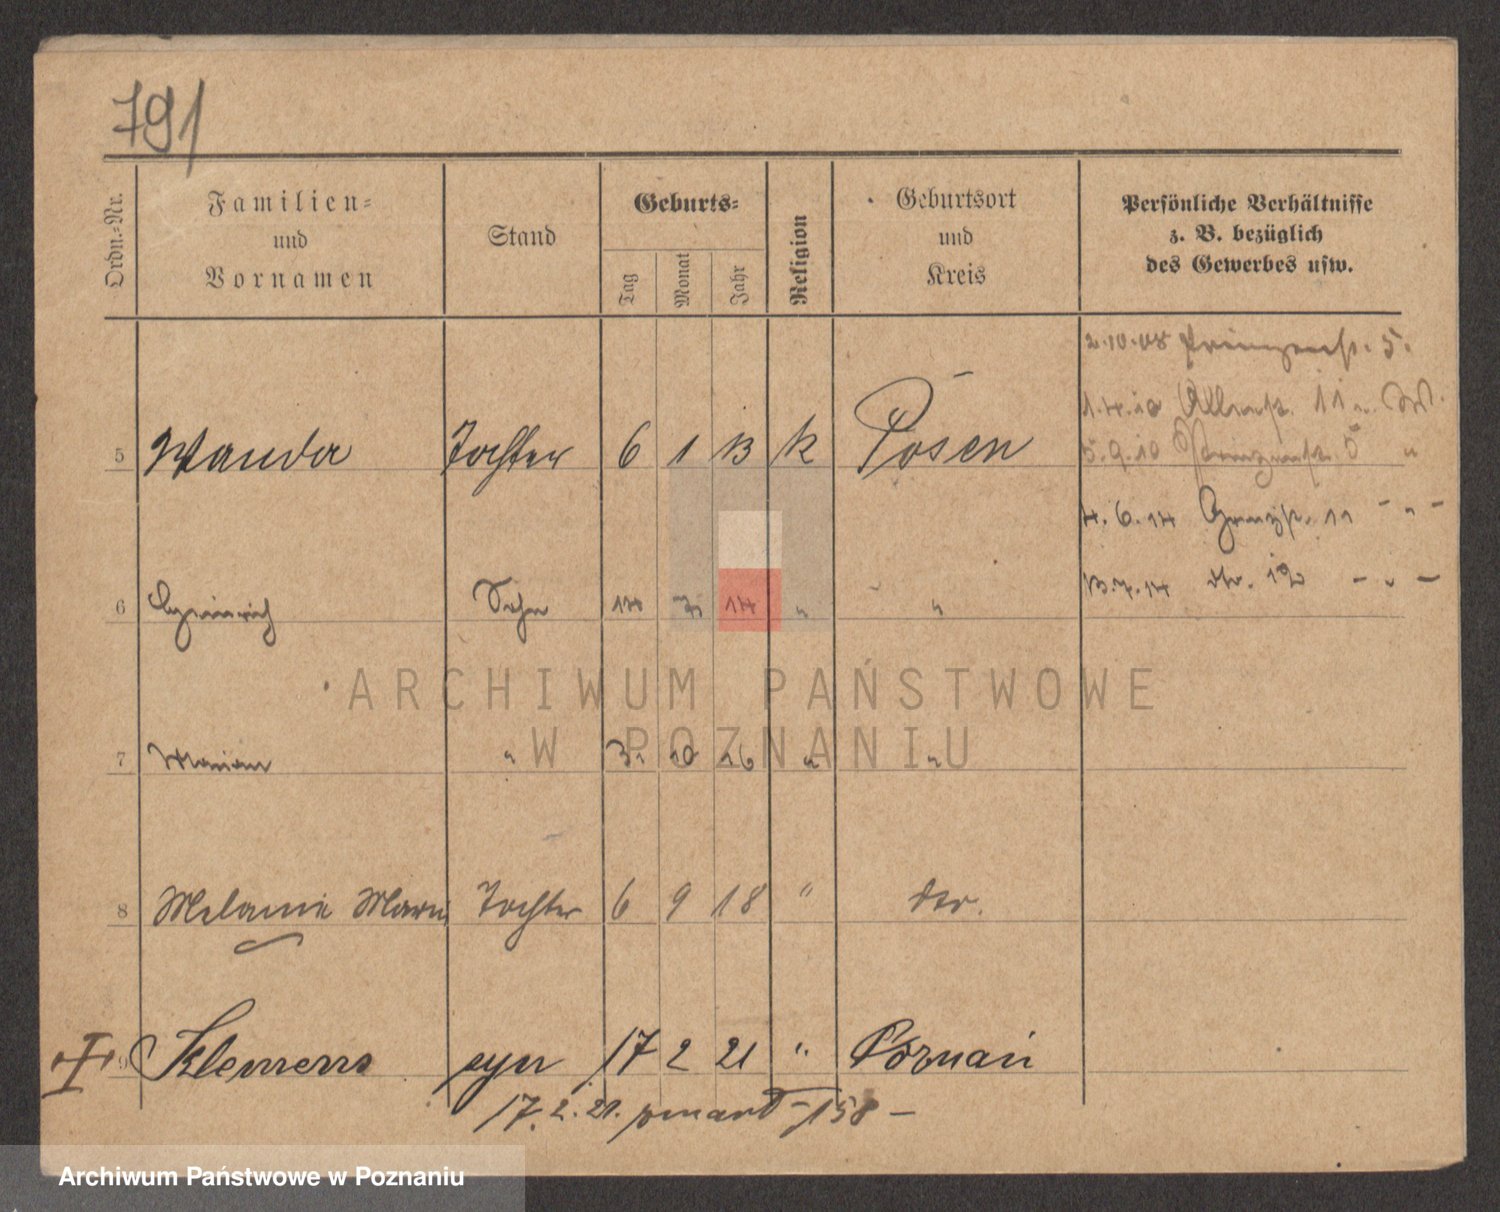 791
Ordn.-Nr.
Familien-
und
Vornamen
Stand
Geburts-
Tag
Monat
Jahr
Religion
Geburtsort
und
Kreis
Persönliche Verhältnisse
z. B. bezüglich
des Gewerbes usw.
2.10.08 Prinzenstr. 5.
1.4.10 11
5.9.10 Prinzenstr. 5 "
5 Wanda Tochter 6 1 13 k Posen
4.6.14 Grenzstr. 11 - " -
13.7.14 dto. 12 - " -
6 Heinrich Sohn 14 7 14 " "
ARCHIWUM PAŃSTWOWE
W POZNANIU
7 Marian " 31 10 16 " "
8 Melanie Marie Tochter 6 9 18 " dto.
9 Klemens syn 17 2 21 " Poznań
17.2.21. zmarł 158 -
Archiwum Państwowe w Poznaniu